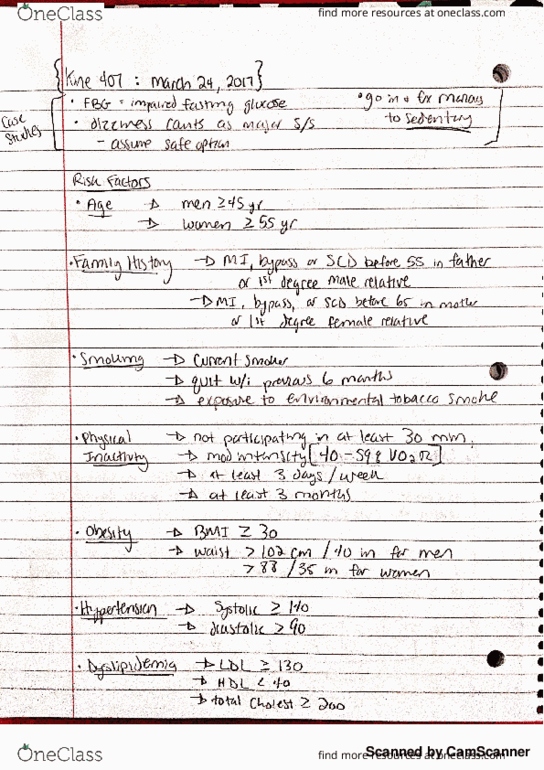 OneClass
find more resources at oneclass.com
{Kine 407 : March 24, 2017}
Case Studies
• FBG = impaired fasting glucose
• dizziness counts as major S/S
- assume safe option
• go in
to sedentary
Risk Factors
• Age → men ≥45 yr
→ women ≥ 55 yr
• Family History → MI, bypass or SCD before 55 in father
or 1st degree male relative
→ MI, bypass, or SCD before 65 in mother
or 1st degree female relative
• Smoking → Current smoker
→ quit w/i previous 6 months
→ exposure to environmental tobacco smoke
• Physical → not participating in at least 30 min,
Inactivity → mod intensity [40 - 59% VO2R]
→ at least 3 days / week
→ at least 3 months
• Obesity → BMI ≥ 30
→ waist > 102 cm / 40 in for men
> 88 / 35 in for women
• Hypertension → Systolic ≥ 140
→ diastolic ≥ 90
• Dyslipidemia → LDL ≥ 130
→ HDL < 40
→ total cholest ≥ 200
OneClass
find more resources at oneclass.com
Scanned by CamScanner